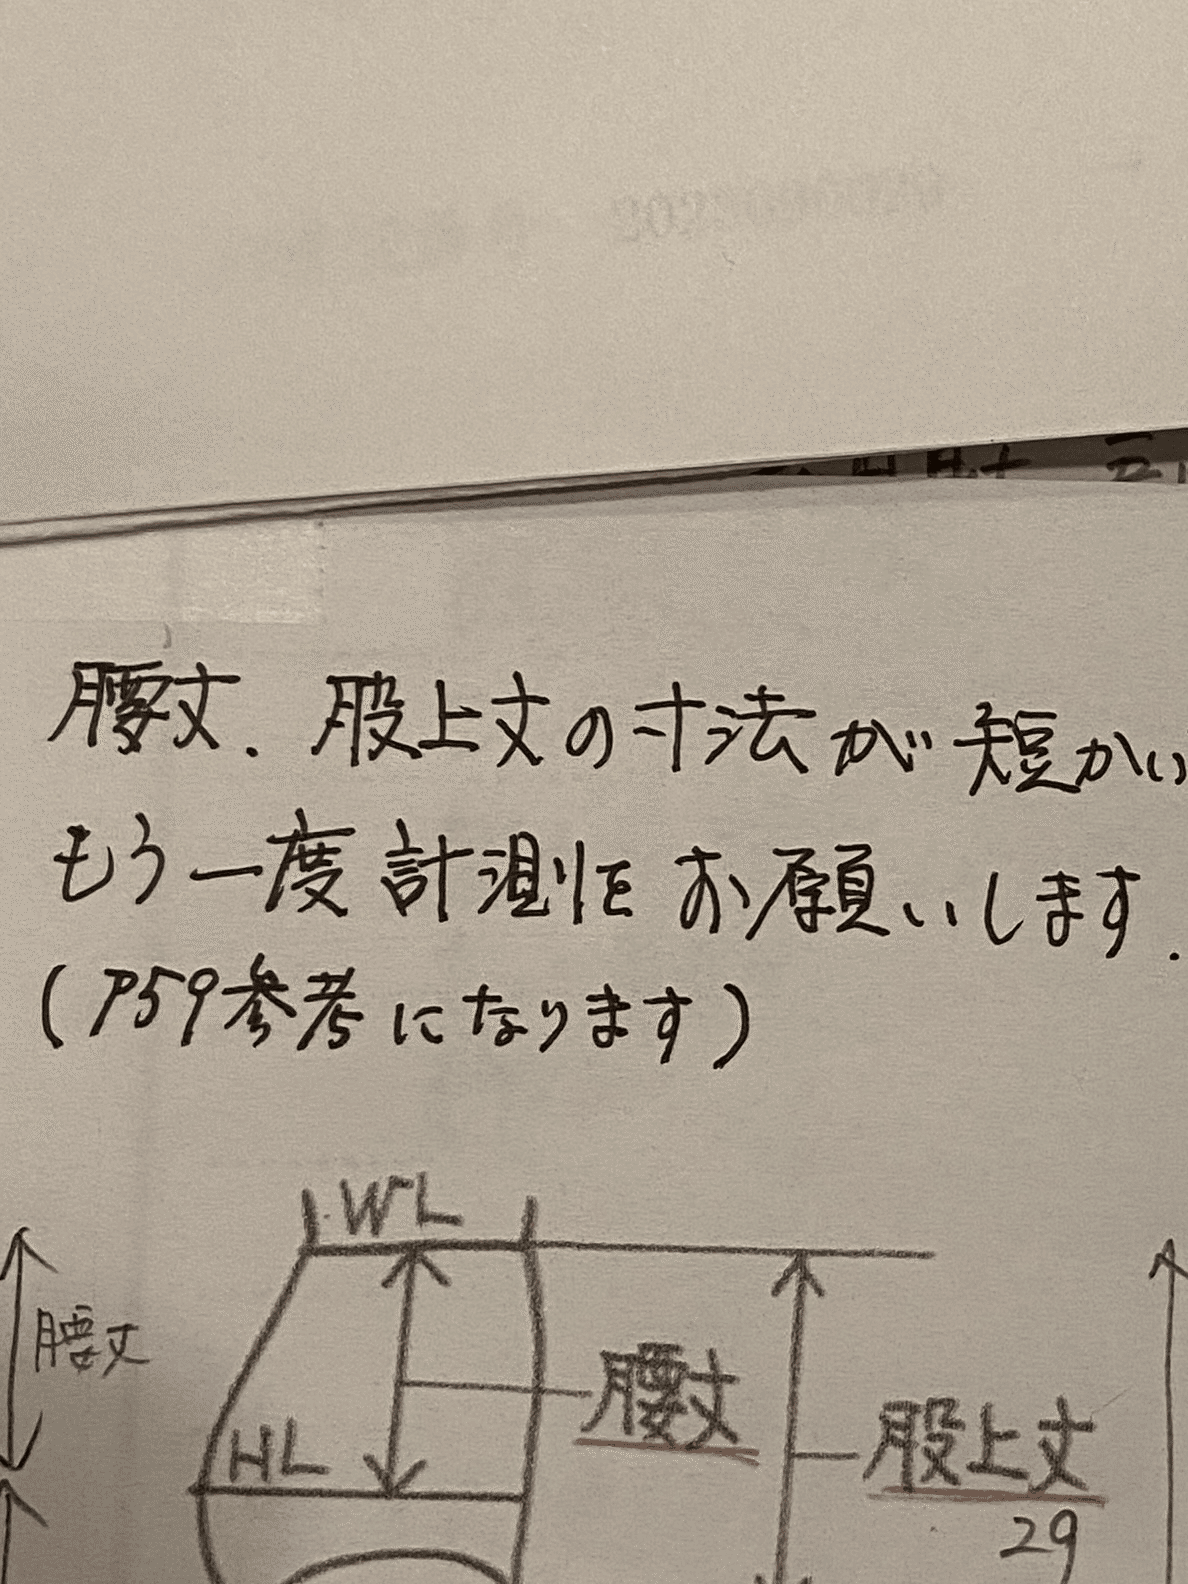 腰丈、股上丈の寸法が短かい
もう一度計測をお願いします.
(P59参考になります)
WL
腰丈
腰丈
HL
股上丈
29